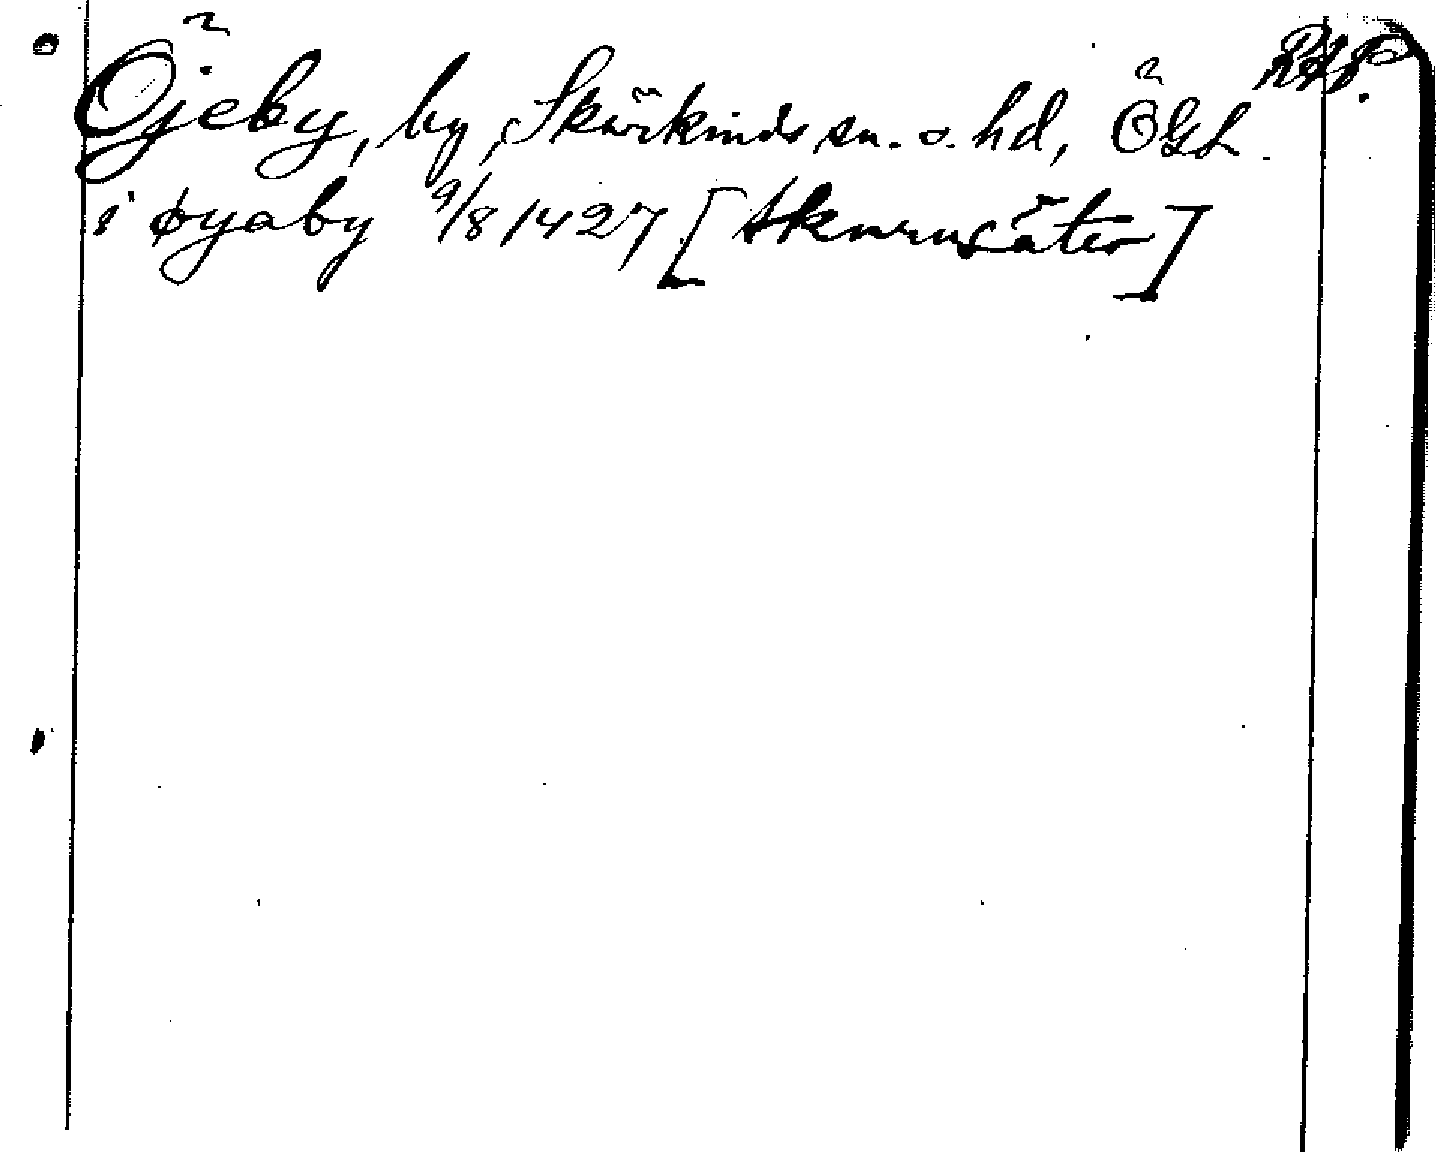 RAP.
Öjeby, by, Skärkinds sn. o. hd, ÖGL.
i øyaby 9/8 1427 [Skurusäter]